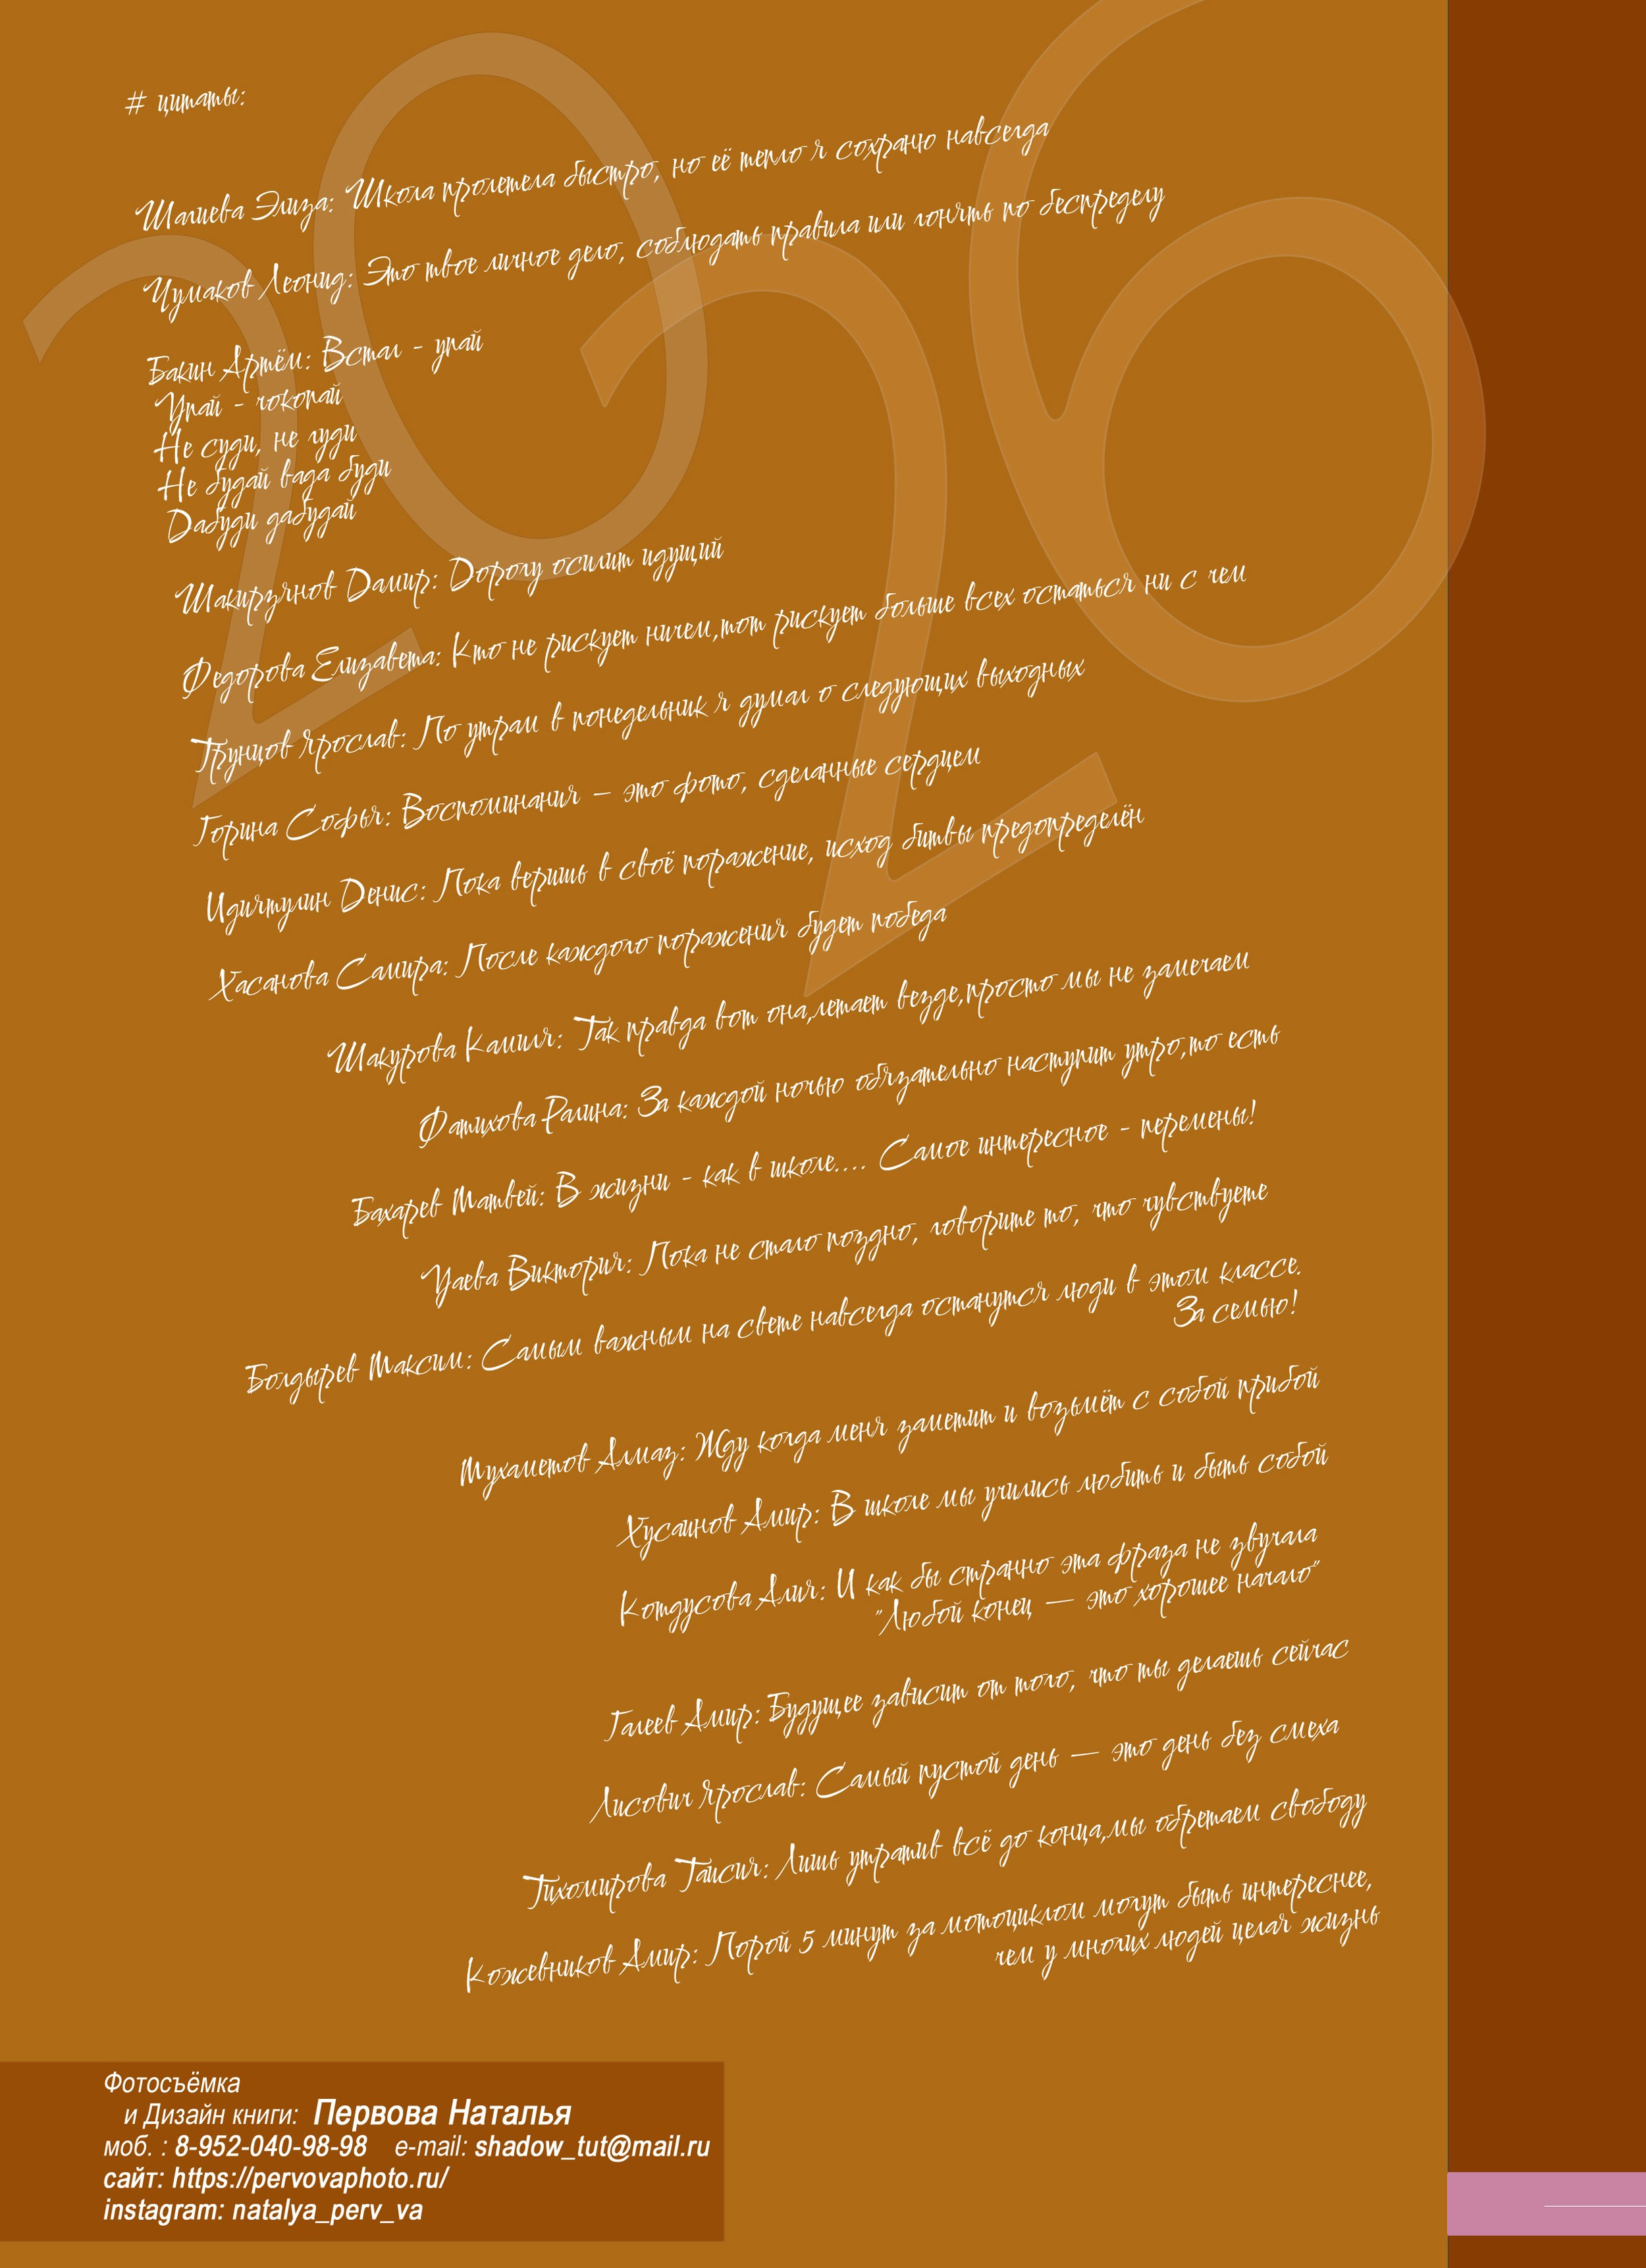 2026
# цитаты:
Шагиева Элиза: Школа пролетела быстро, но её тепло я сохраню навсегда
Чумаков Леонид: Это твое личное дело, соблюдать правила или гонять по беспределу
Бакин Артём: Встал - упай
Упай - чокопай
Не суди, не гуди
Не будай вада буди
Дабуди дабудай
Шакирзянов Дамир: Дорогу осилит идущий
Федорова Елизавета: Кто не рискует ничем,тот рискует больше всех остаться ни с чем
Трунцов Ярослав: По утрам в понедельник я думал о следующих выходных
Горина Софья: Воспоминания – это фото, сделанные сердцем
Идиятулин Денис: Пока веришь в своё поражение, исход битвы предопределён
Хасанова Самира: После каждого поражения будет победа
Шакурова Камиля: Так правда вот она,летает везде,просто мы не замечаем
Фатихова Ралина: За каждой ночью обязательно наступит утро,то есть
Бахарев Матвей: В жизни - как в школе.... Самое интересное - перемены!
Уаева Виктория: Пока не стало поздно, говорите то, что чувствуете
Болдырев Максим: Самым важным на свете навсегда останутся люди в этом классе.
За семью!
Мухаметов Алмаз: Жду когда меня заметит и возьмёт с собой прибой
Хусаинов Амир: В школе мы учились любить и быть собой
Котдусова Алия: И как бы странно эта фраза не звучала
"Любой конец — это хорошее начало"
Галеев Амир: Будущее зависит от того, что ты делаешь сейчас
Лисович Ярослав: Самый пустой день — это день без смеха
Тихомирова Таисия: Лишь утратив всё до конца,мы обретаем свободу
Кожевников Амир: Порой 5 минут за мотоциклом могут быть интереснее,
чем у многих людей целая жизнь
Фотосъёмка
и Дизайн книги: Первова Наталья
моб. : 8-952-040-98-98 e-mail: shadow_tut@mail.ru
сайт: https://pervovaphoto.ru/
instagram: natalya_perv_va